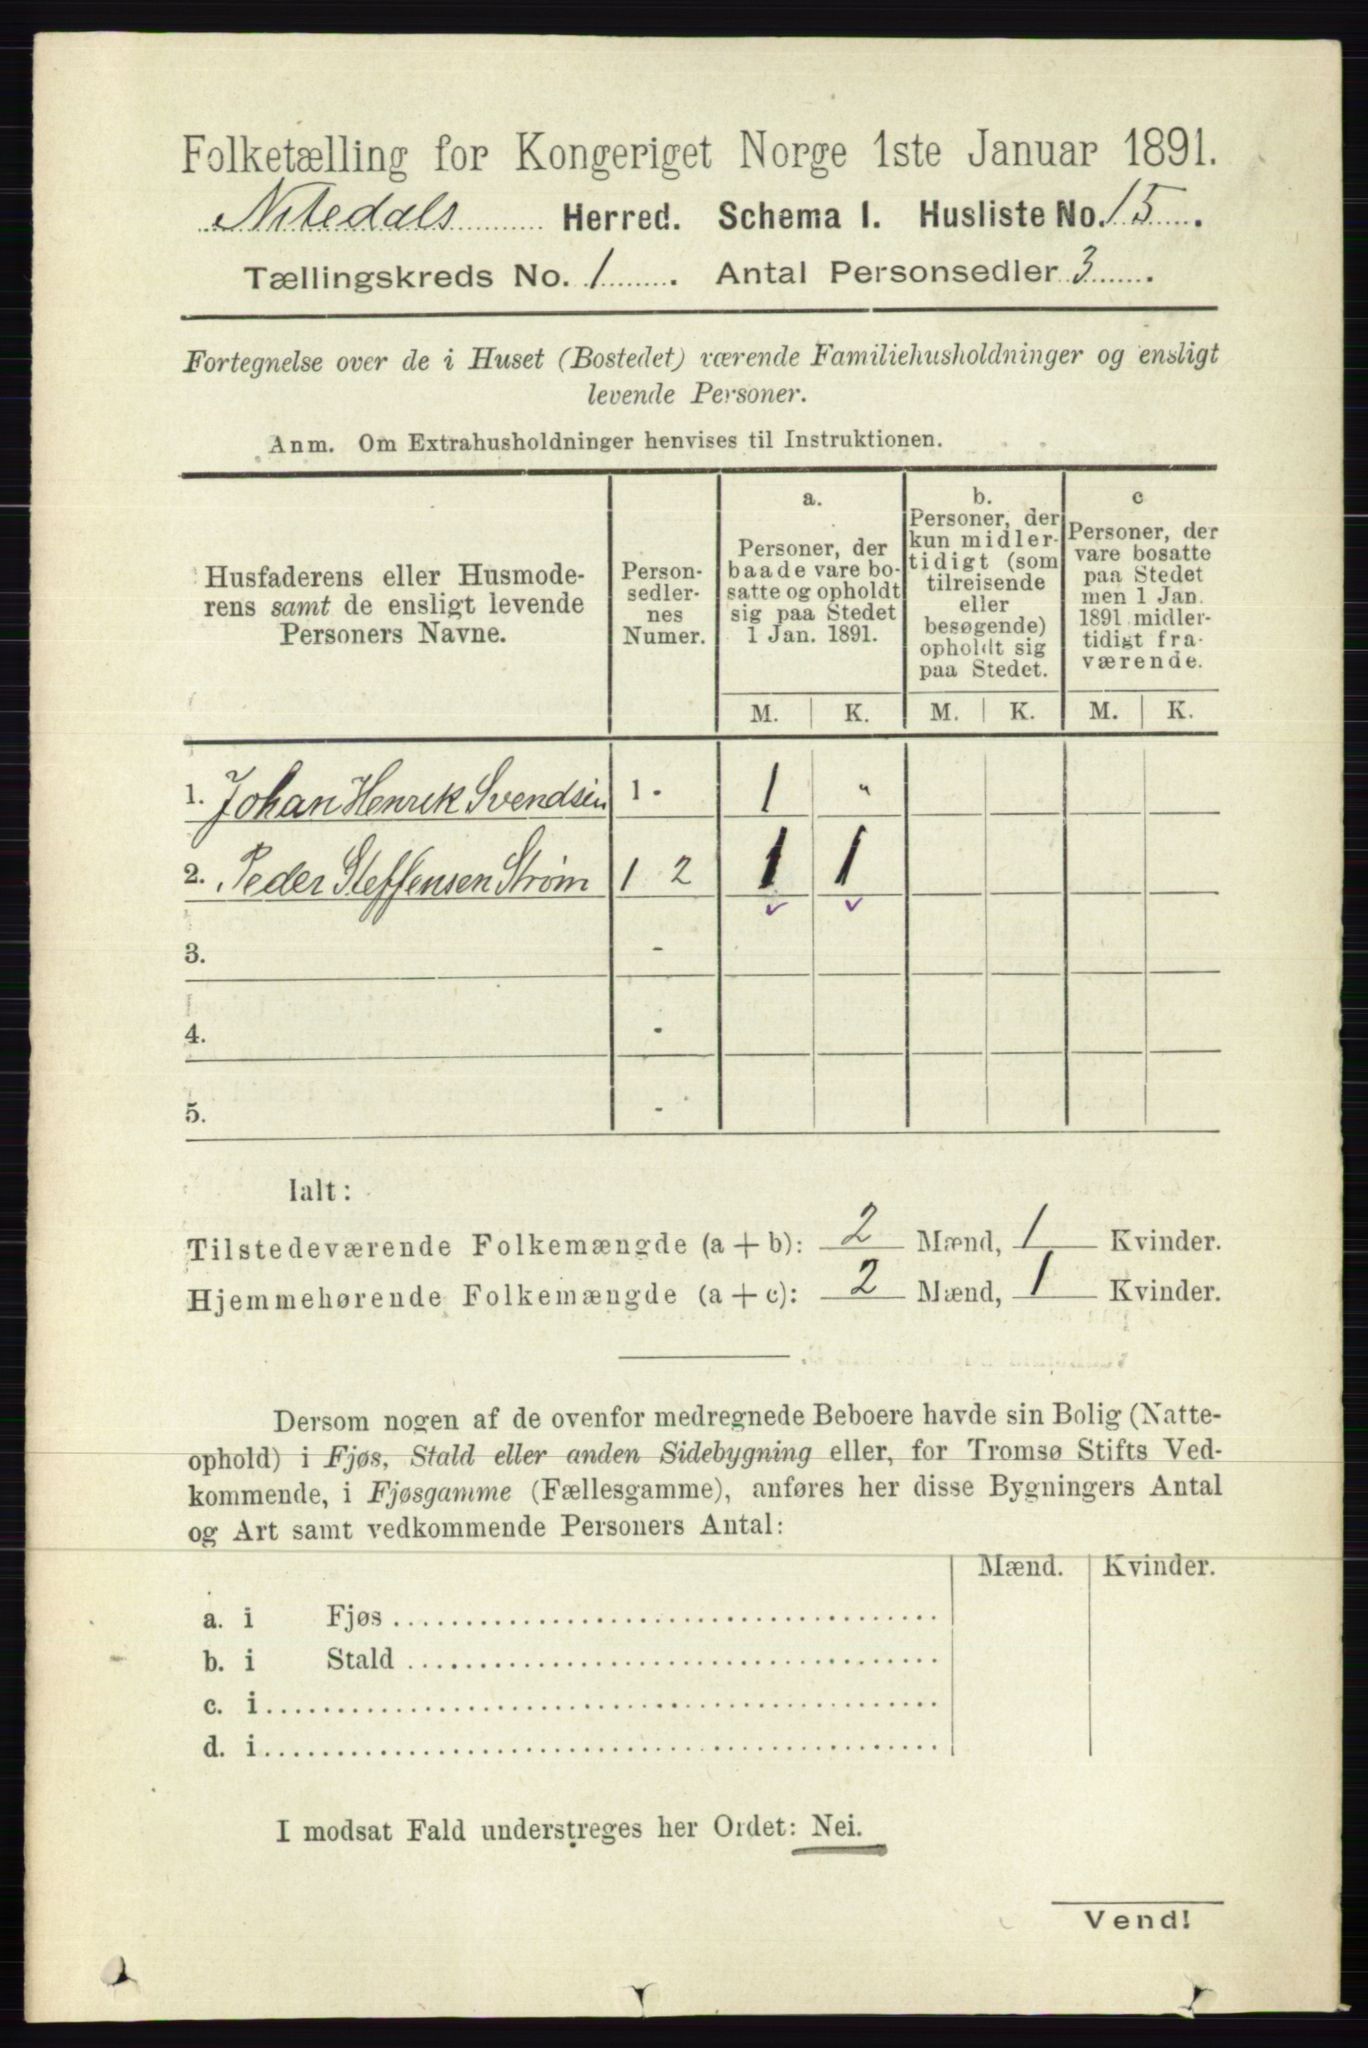 Folketælling for Kongeriget Norge 1ste Januar 1891.
Nitedals Herred. Schema I. Husliste No. 15.
Tællingskreds No. 1. Antal Personsedler 3.
Fortegnelse over de i Huset (Bostedet) værende Familiehusholdninger og ensligt
levende Personer.
Anm. Om Extrahusholdninger henvises til Instruktionen.
Husfaderens eller Husmode-
rens samt de ensligt levende
Personers Navne.
Person-
sedler-
nes
Numer.
a.
Personer, der
baade vare bo-
satte og opholdt
sig paa Stedet
1 Jan. 1891.
b.
Personer, der
kun midler-
tidigt (som
tilreisende
eller
besøgende)
opholdt sig
paa Stedet.
c
Personer, der
vare bosatte
paa Stedet
men 1 Jan.
1891 midler-
tidigt fra-
værende.
M. K. M. K. M. K.
1. Johan Henrik Svendsen 1 - 1 "
2. Peder Steffensen Strøm 1 2 1 1
3. -
4. -
5. -
Ialt:
Tilstedeværende Folkemængde (a + b): 2 Mænd, 1 Kvinder.
Hjemmehørende Folkemængde (a + c): 2 Mænd, 1 Kvinder.
Dersom nogen af de ovenfor medregnede Beboere havde sin Bolig (Natte-
ophold) i Fjøs, Stald eller anden Sidebygning eller, for Tromsø Stifts Ved-
kommende, i Fjøsgamme (Fællesgamme), anføres her disse Bygningers Antal
og Art samt vedkommende Personers Antal:
Mænd. Kvinder.
a. i Fjøs
b. i Stald
c. i
d. i
I modsat Fald understreges her Ordet: Nei.
Vend!